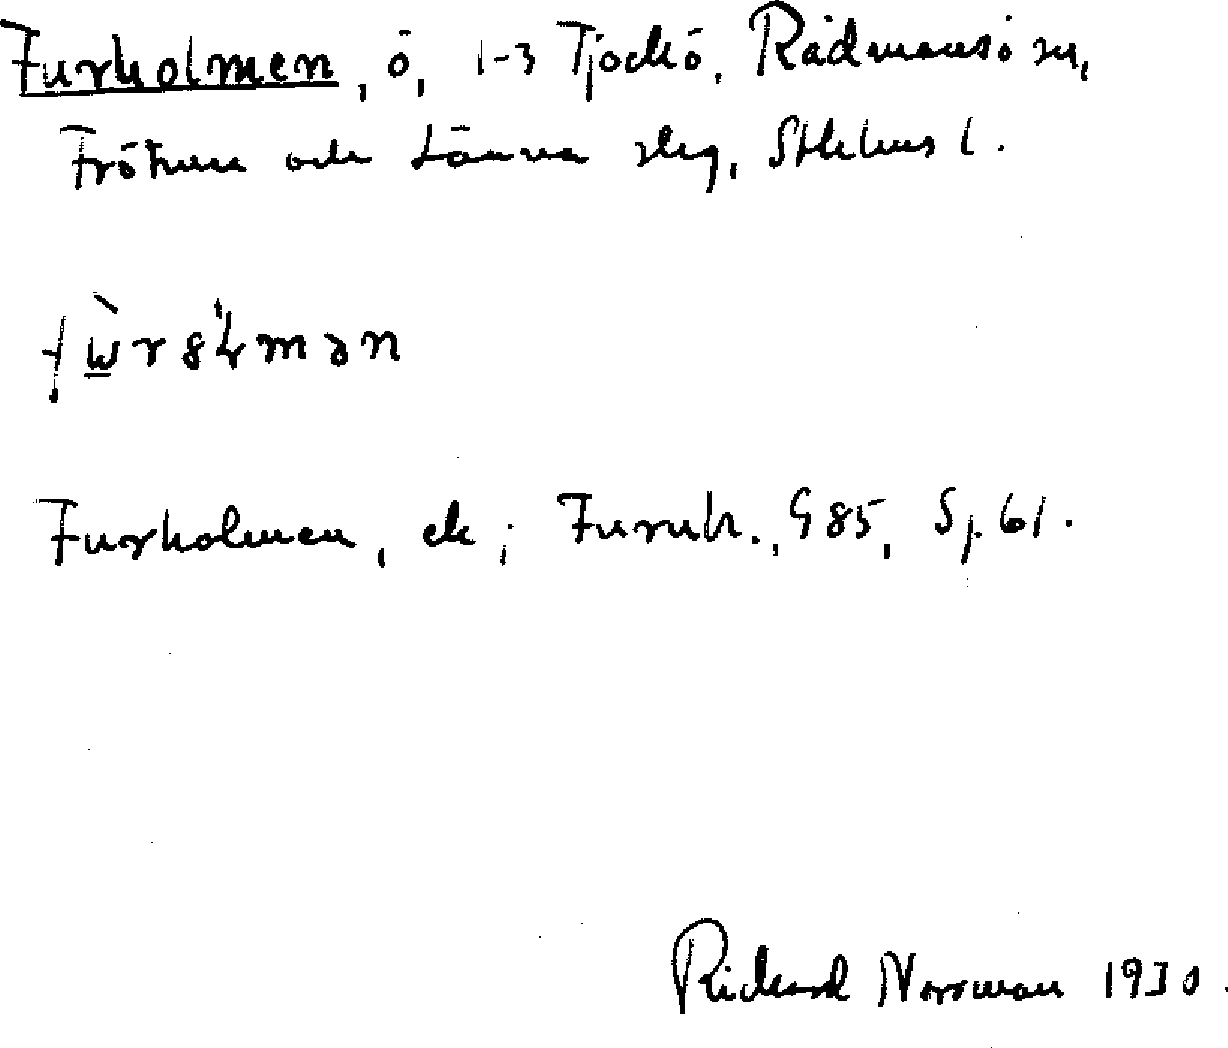 Furholmen, ö, 1-3 Tjockö, Rådmansö sn,
Frötuna och Länna slg, Sthlms l.
Furholmen, ek; Furuh., G85, Sj. 61.
Richard Norrman 1930.